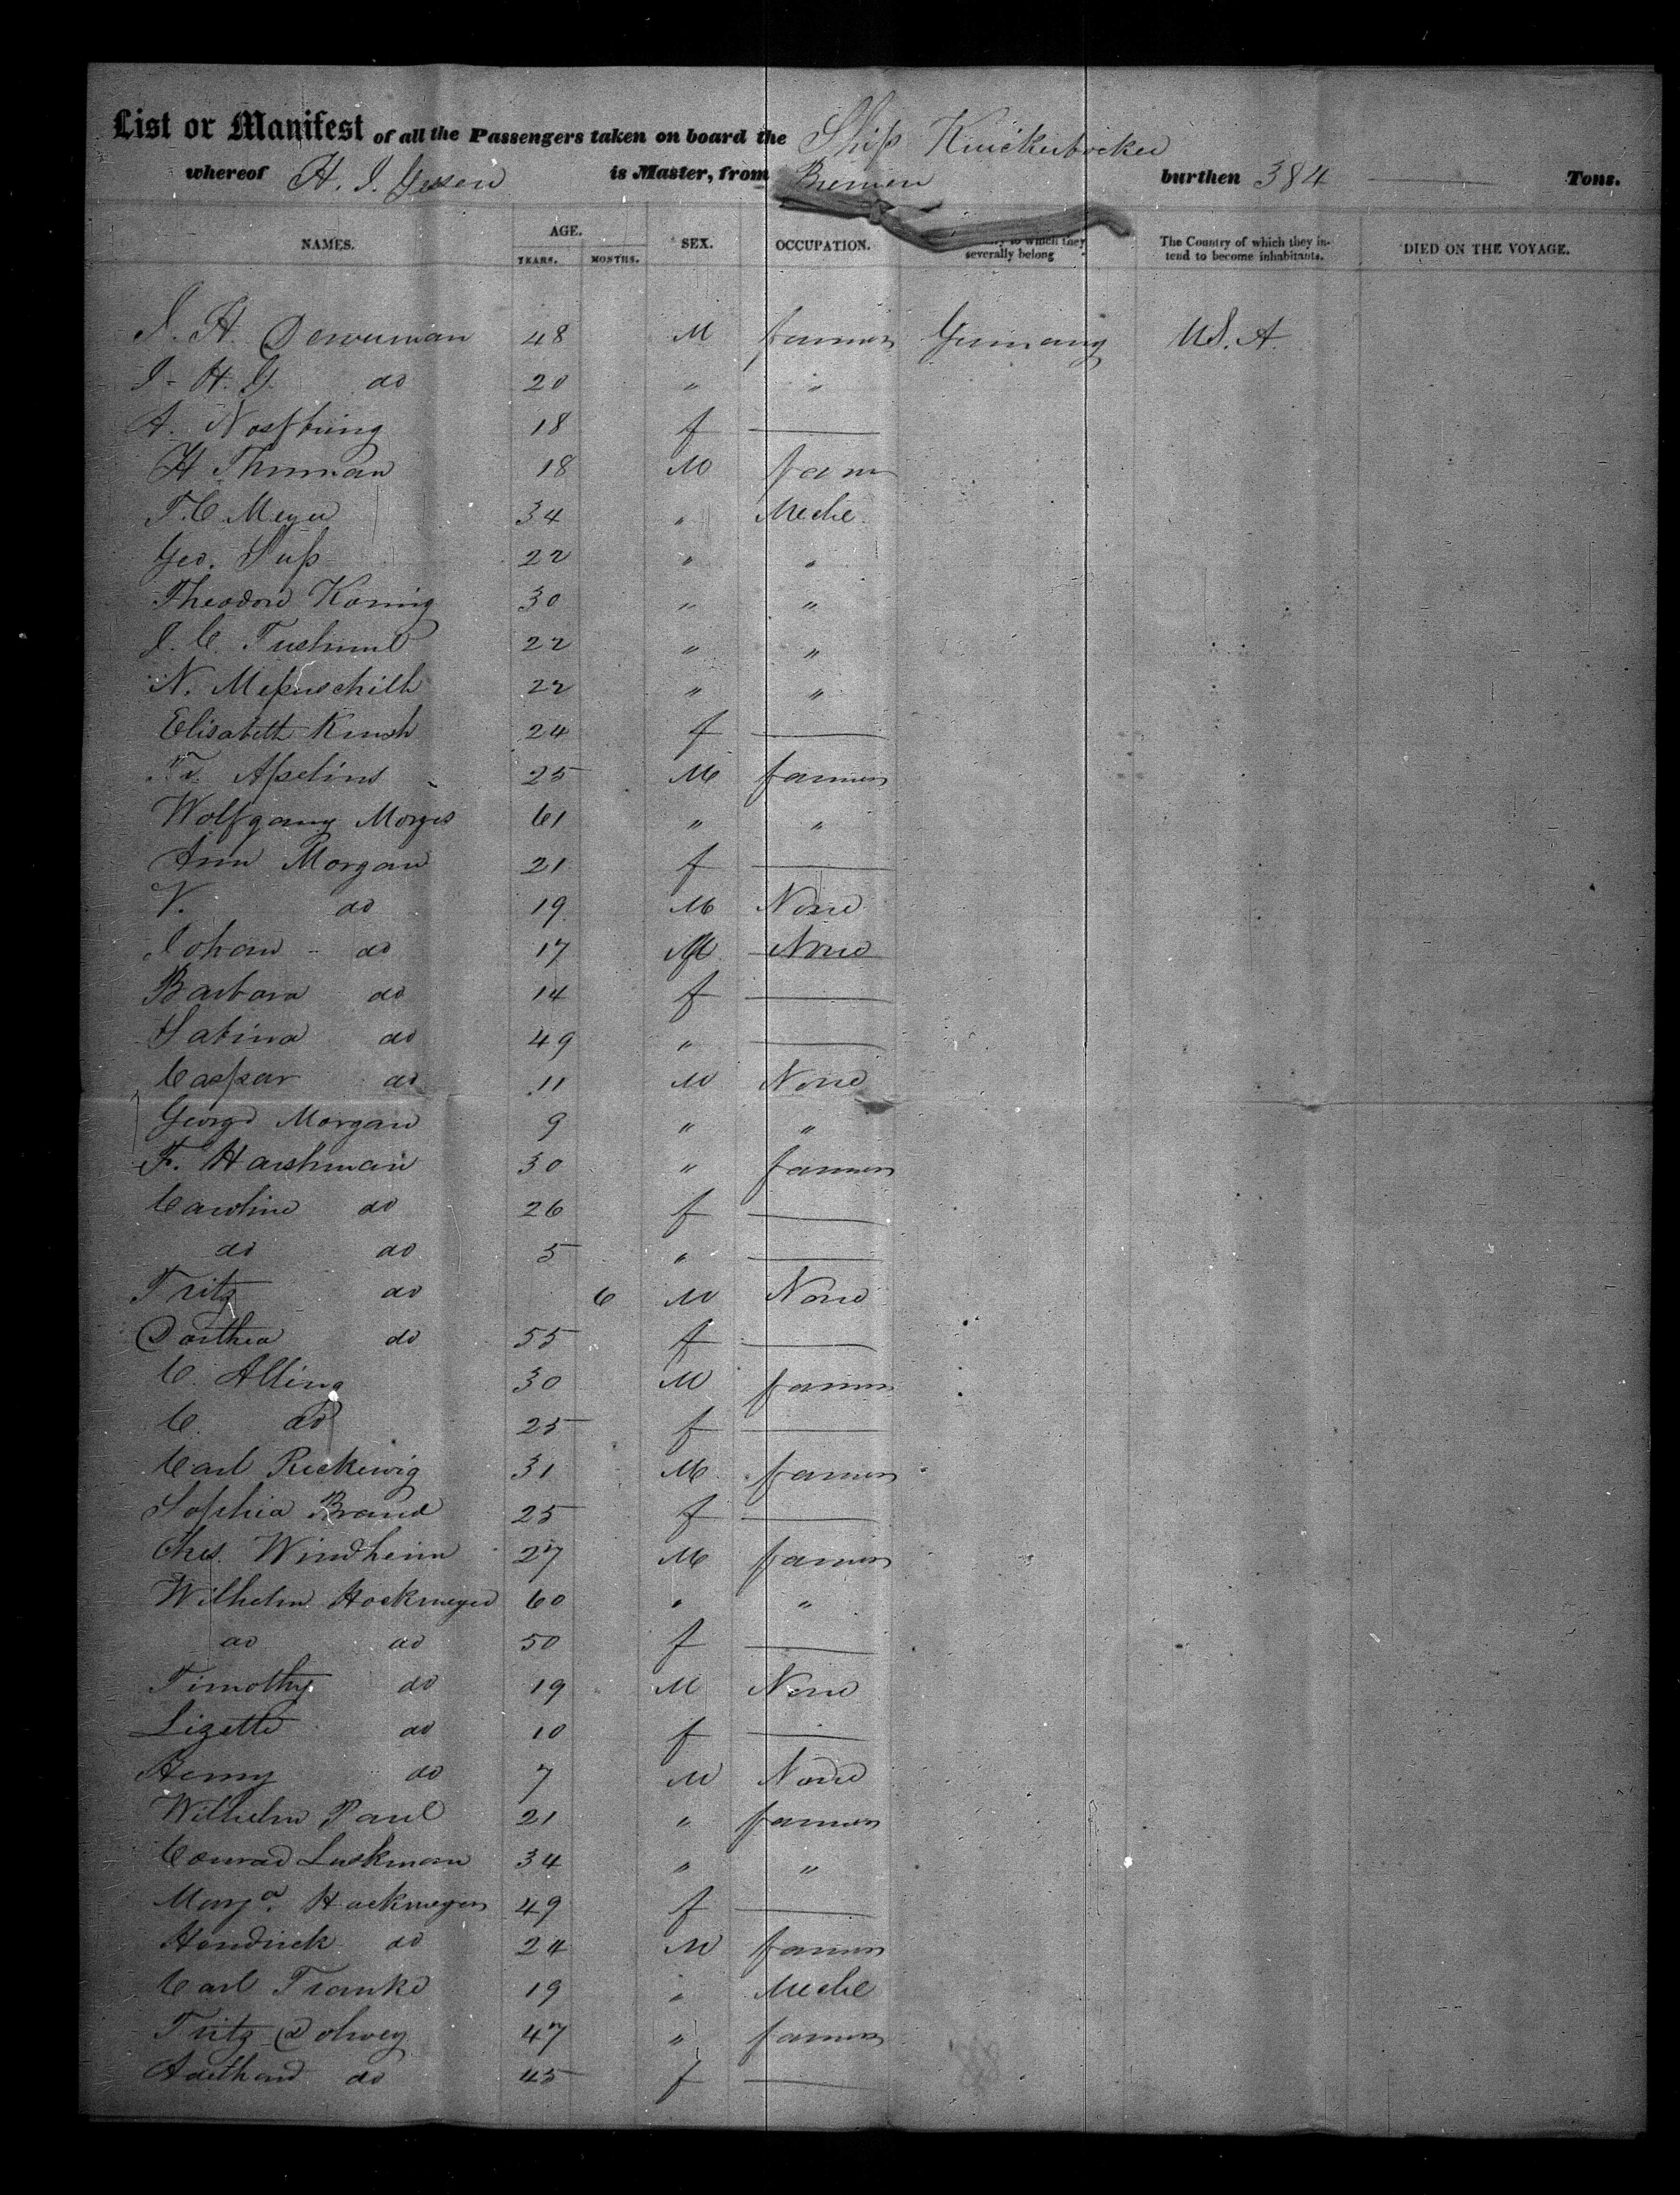 List or Manifest of all the Passengers taken on board the Ship Knickerbocker
whereof H. I. is Master, from Bremen burthen 384 Tons.
NAMES. AGE. YEARS. MONTHS. SEX. OCCUPATION. to which they severally belong The Country of which they intend to become inhabitants. DIED ON THE VOYAGE.
I. H. 48 M farmer Germany U.S.A.
I. H. G. do 20 " "
A. 18 f
H Thurman 18 M farm
T. C. Meyer 34 " Meche
Geo. 22 " "
Theodore Koning 30 " "
I. C. 22 " "
N. 22 " "
Elisabeth 24 f
Fr. 25 M farmer
Wolfgang 61 " "
Ann Morgan 21 f
V. do 19 M None
Johan do 17 M None
Barbara do 14 f
Sabina do 49 "
Caspar do 11 M None
George Morgan 9 " "
F. Harshman 30 " farmer
Caroline do 26 f
do do 5 "
Fritz do 6 M None
Dorthea do 55 f
C. Alling 30 M farmer
C. do 25 f
Carl Reckewig 31 M farmer
Sophia Brand 25 f
Chs. Windheim 27 M farmer
Wilhelm Hockmeyer 60 " "
do do 50 f
Timothy do 19 M None
Lizette do 10 f
Henry do 7 M None
Wilhelm Paul 21 " farmer
Conrad Luckmann 34 " "
Marga. Hackmeyer 49 f
Hendrick do 24 M farmer
Carl Franke 19 " Meche
Fritz Dolwey 47 " farmer
do 45 f